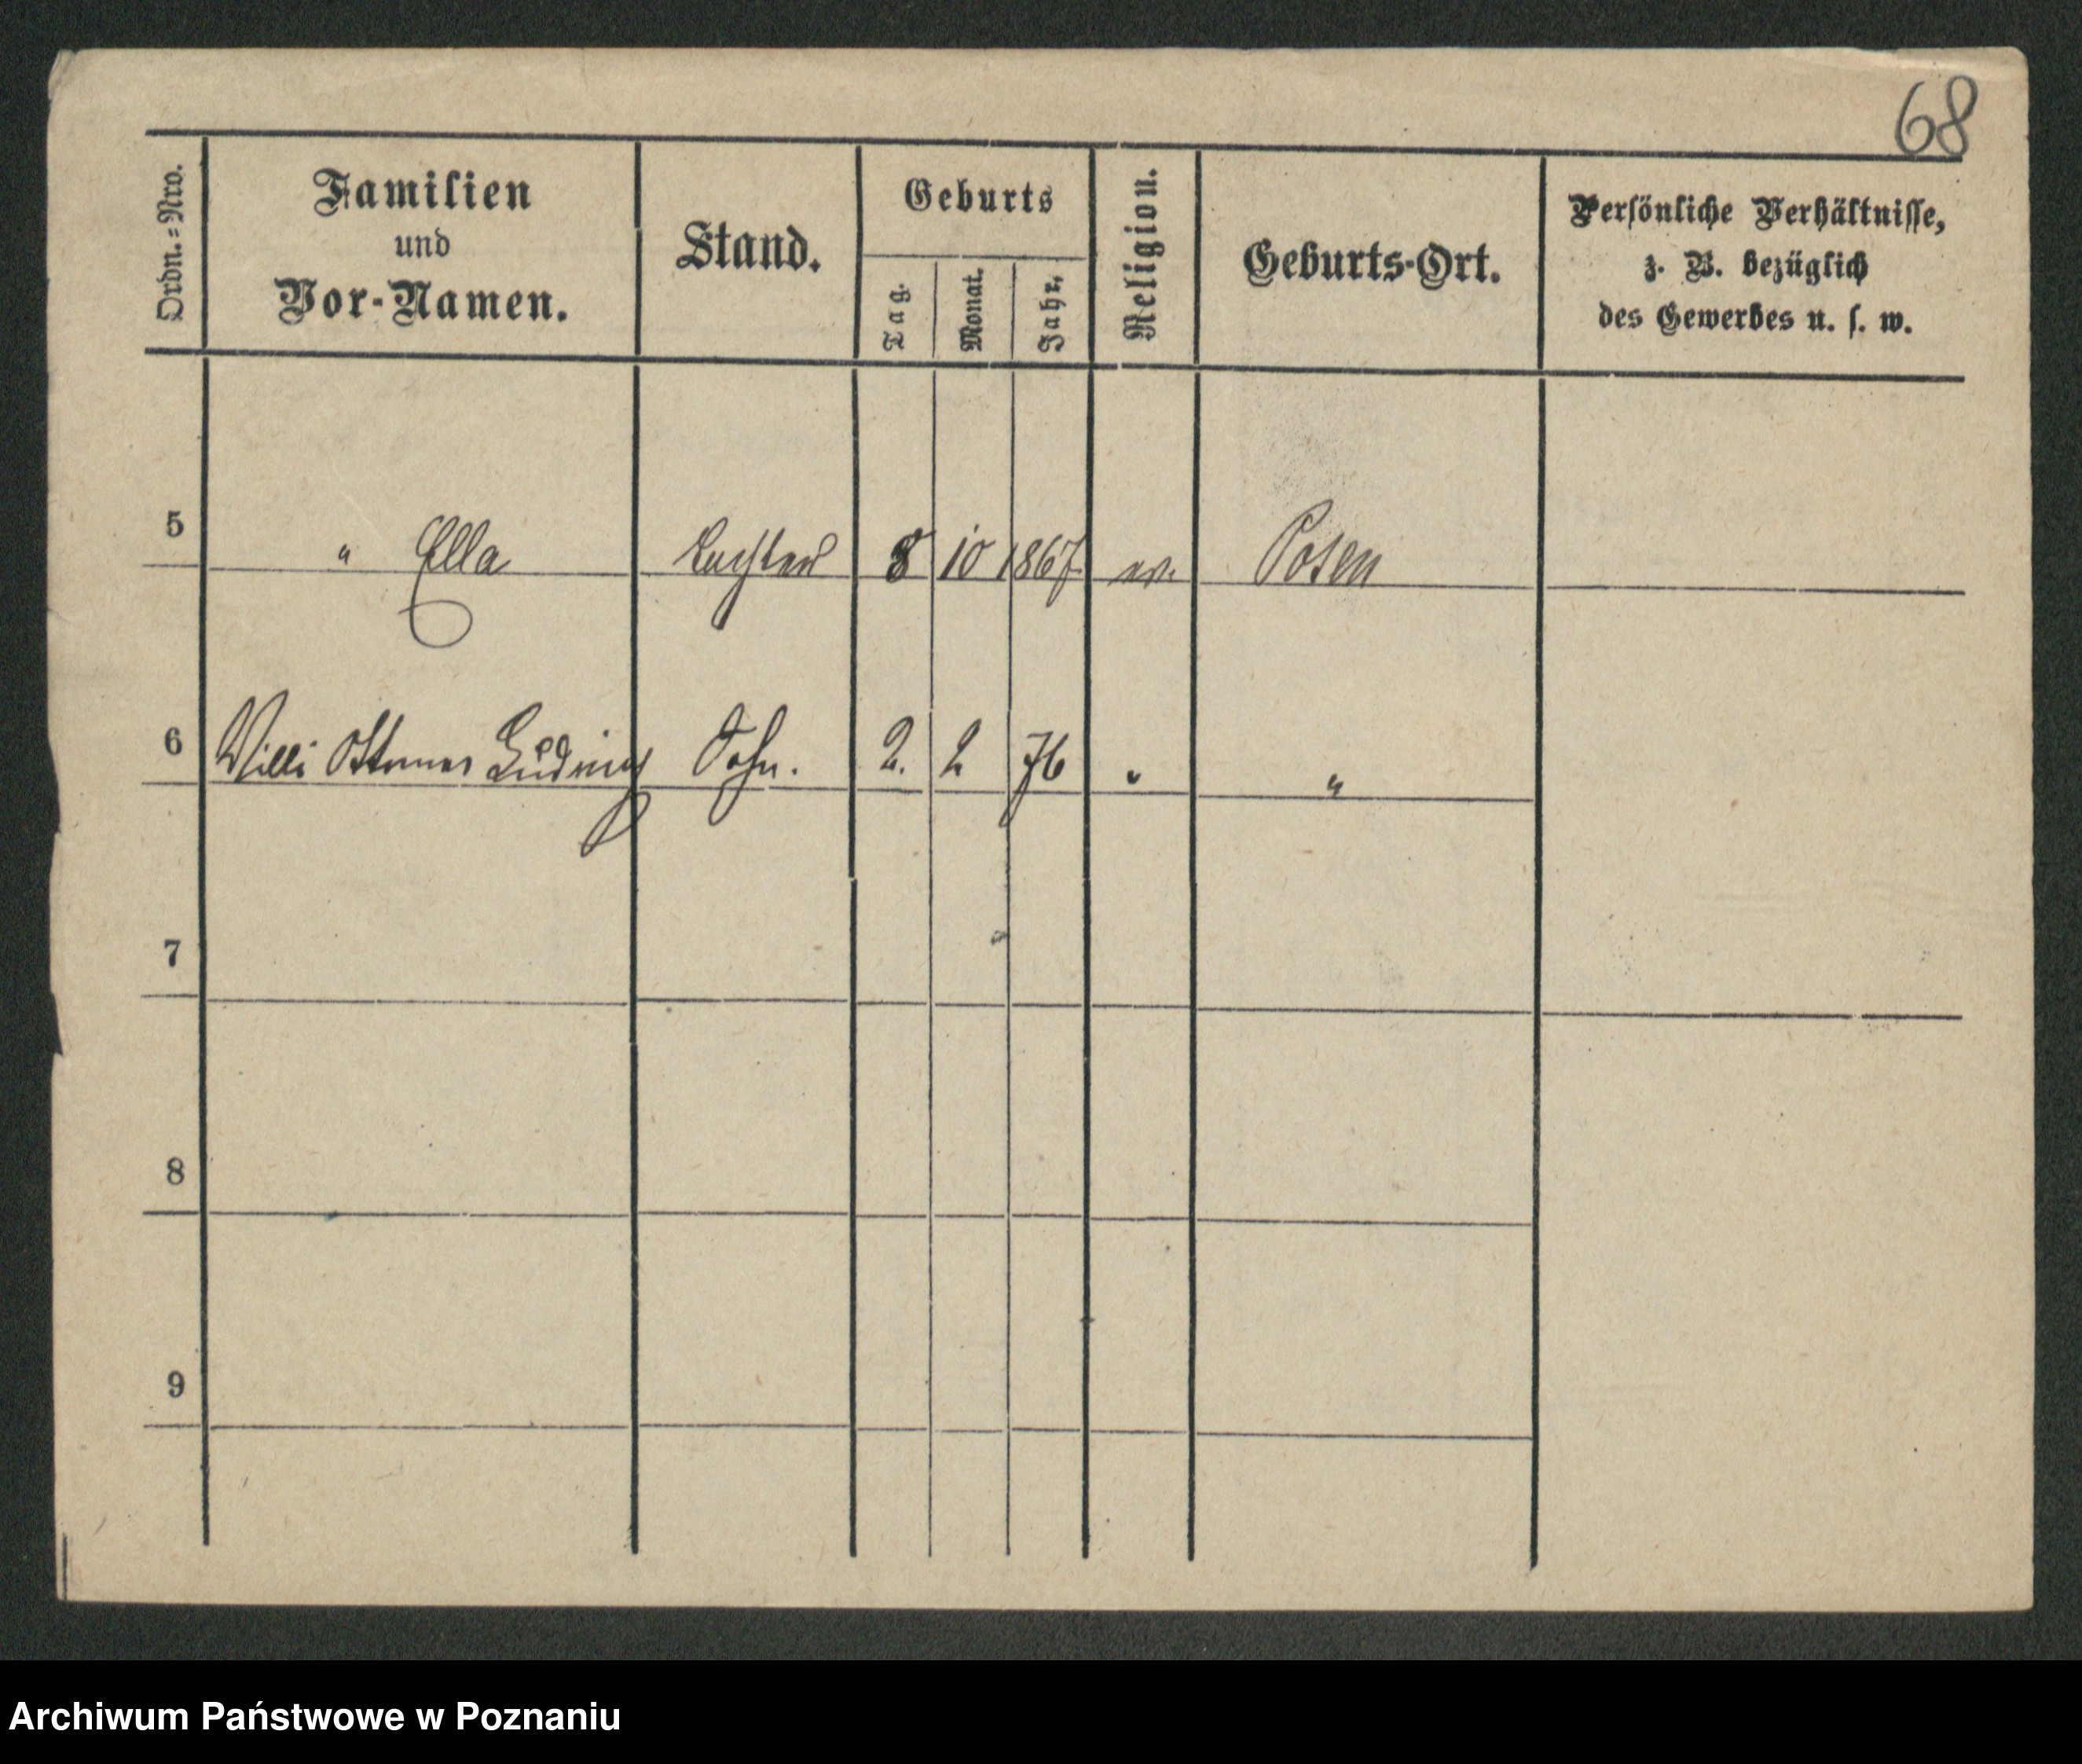 68
Ordn.-Nro.
Familien
und
Vor-Namen.
Stand.
Geburts
Tag.
Monat.
Jahr.
Religion.
Geburts-Ort.
Persönliche Verhältnisse,
z. B. bezüglich
des Gewerbes u. s. w.
5 " Ella Tochter 8 10 1867 ev. Posen
6 Willi Ludwig Sohn. 2. 2 76 " "
7
8
9
Archiwum Państwowe w Poznaniu